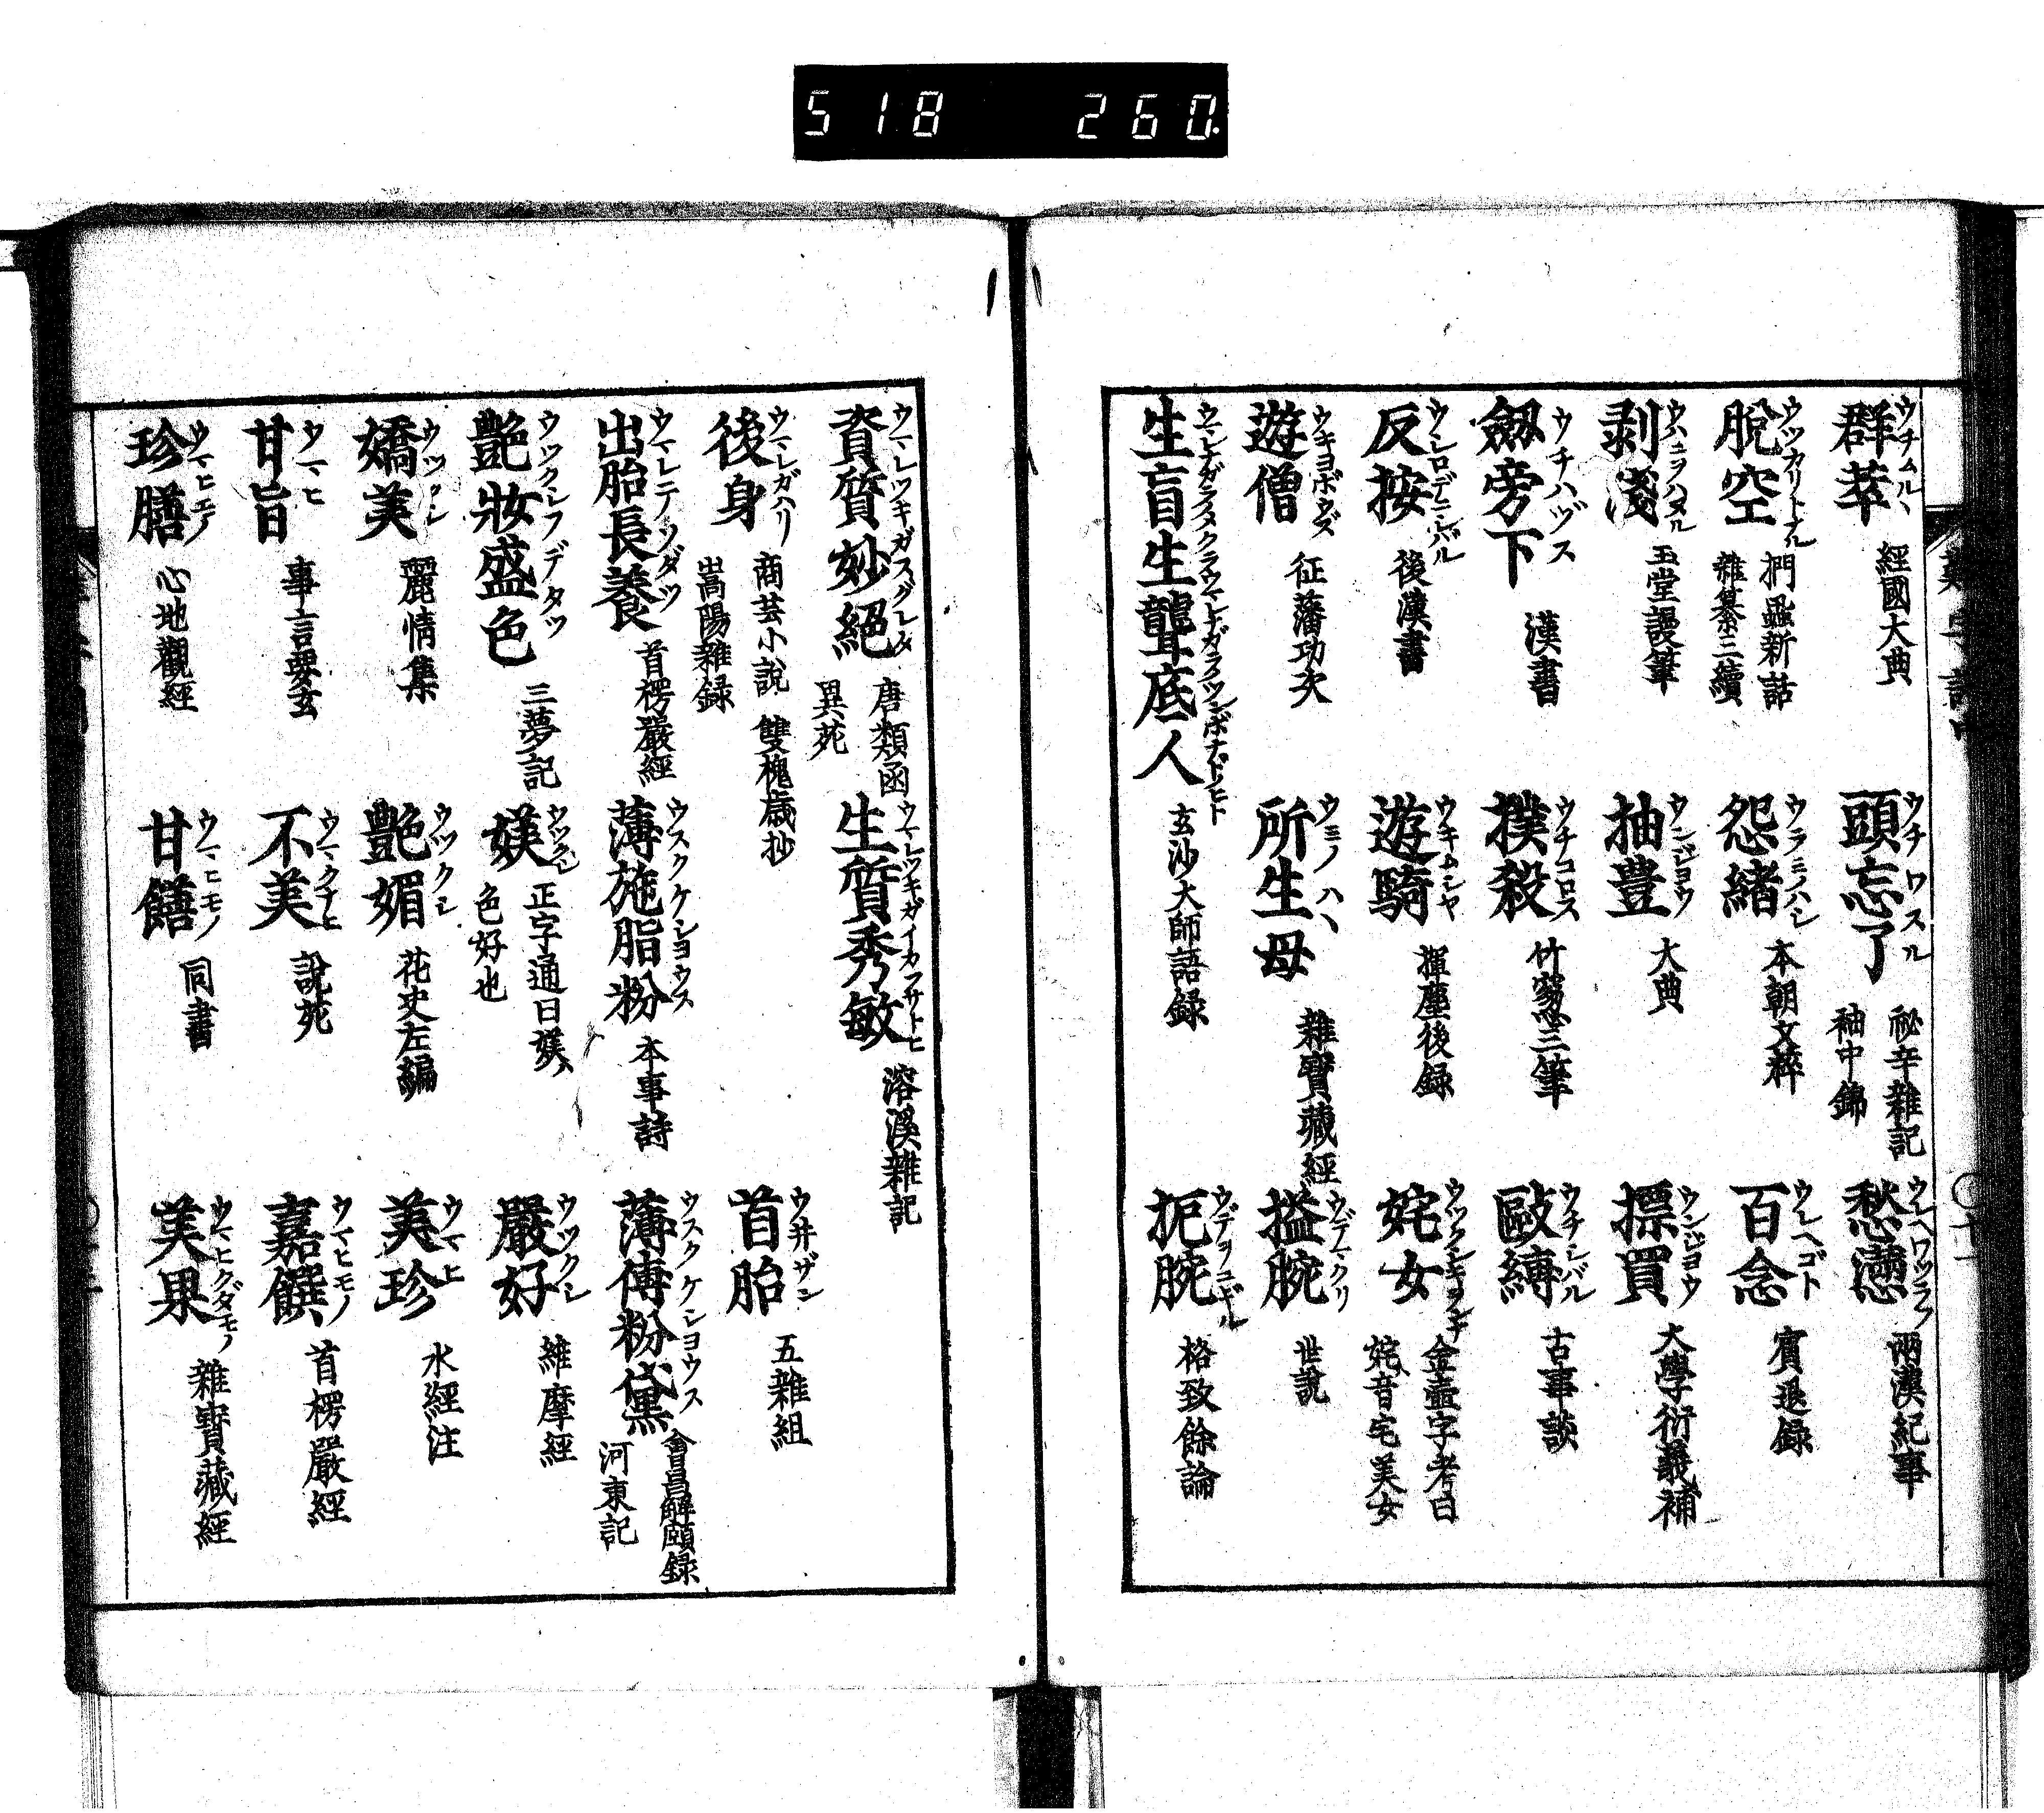 518 260.
群萃 ウチムルヽ 經國大典
頭忘了 ウチワスル 祕辛雜記 袖中錦
愁懣 ウレヘワヅラフ 兩漢紀事
脫空 ウツカリトナル 捫蝨新話 雜纂三續
怨緒 ウラミノハシ 本朝文粹
百念 ウレヘゴト 賓退録
剥淺 玉堂謾筆
抽豊 ウンジヨウ 大典
摽買 ウンジヨウ 大學衍義補
劔旁下 ウチハヅス 漢書
撲殺 ウチコロス 竹窓三筆
毆縛 ウチシバル 古事談
反按 ウシロデニシバル 後漢書
遊騎 ウキムシヤ 揮塵後録
姹女 金壷字考曰 姹音宅美女
遊僧 ウキヨボウズ 征藩功次
所生母 ウミノハヽ 雜寶藏經
搤腕 ウデマクリ 世說
生盲生聾底人 玄沙大師語録
扼腕 ウデヲニギル 格致餘論
資質妙絕 ウマレツキガスグレタ 唐類函 異苑
生質秀敏 溶溪雜記
後身 ウマレガハリ 商芸小說 雙槐歳抄 嵩陽雜録
首胎 ウ井ザン 五雜組
出胎長養 ウマレテソダツ 首楞嚴經
薄施脂粉 ウスクケシヨウス 本事詩
薄傅粉黛 ウスクケシヨウス 會昌解頤録 河東記
艶妝盛色 ウツクシフデタツ 三夢記
媄 ウツクシ 正字通曰媄 色好也
嚴好 ウツクシ 維摩經
嬌美 ウツクシ 麗情集
艶媚 ウツクシ 花史左編
美珍 ウマヒ 水經注
甘旨 ウマヒ 事言要玄
不美 ウマクナヒ 說苑
嘉饌 ウマヒモノ 首楞嚴經
珍膳 ウマヒモノ 心地觀經
甘饍 ウマヒモノ 同書
美果 ウマヒクダモノ 雜寳藏經